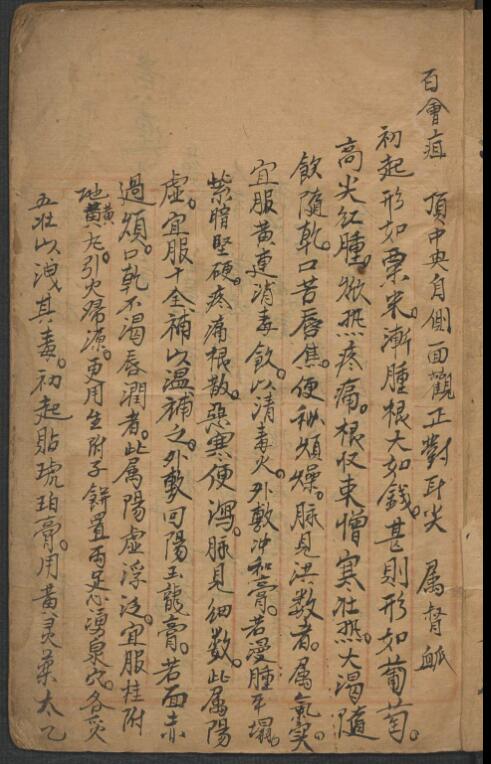 百會疽 頂中央自側面觀正對耳尖 属督脈
初起形如粟米。漸腫根大如錢。甚則形如葡萄。
高尖紅腫。焮热疼痛。根収束憎寒壮热。大渴随
飲随乾。口苦唇焦。便秘煩燥。脉見洪数者。属氣実。
宜服黄連消毒飲。以清毒火。外敷冲和膏。若漫腫平塌。
紫暗堅硬。疼痛根散。惡寒便瀉。脉見细数。此属陽
虛。宜服十全補以温補之。外敷回陽玉龍膏。若面赤
過頰。口乾不渴唇潤者。此属陽虛浮泛。宜服桂附
地黄丸。引火帰源。更用生附子餅置两足心湧泉穴。各灸
五壮以洩其毒。初起貼琥珀膏。用黄灵藥太乙